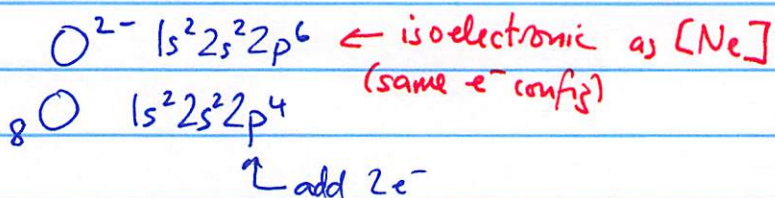 O²⁻ 1s²2s²2p⁶ ← isoelectronic as [Ne]
(same e⁻ config)
₈O 1s²2s²2p⁴
add 2e⁻